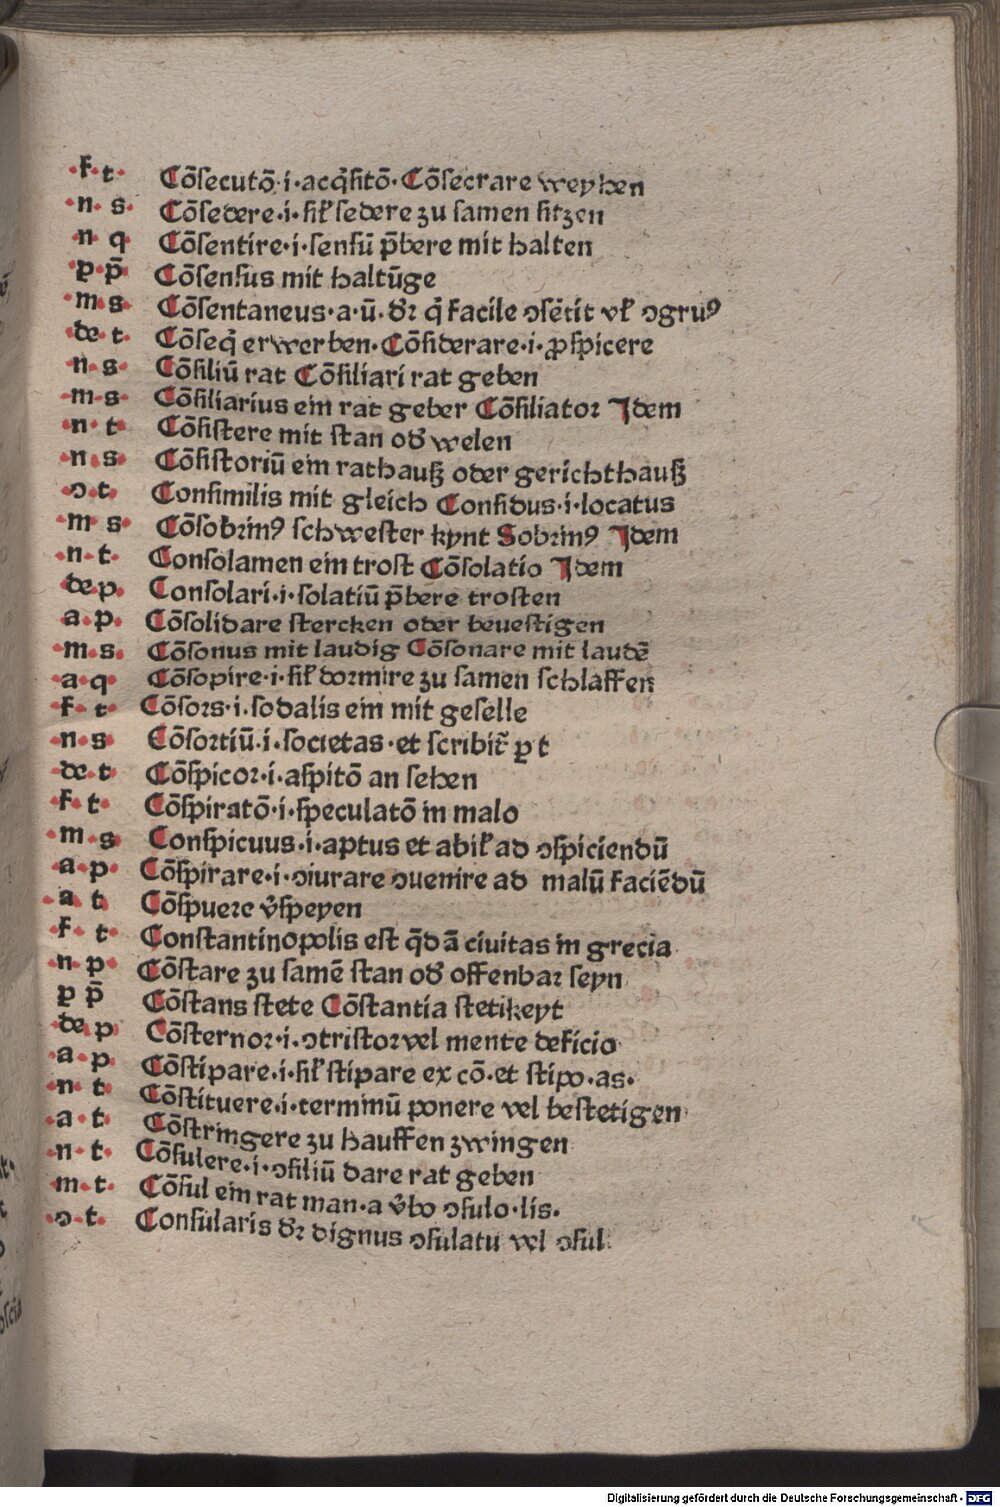 ·f·t· Cōſecutō·i·acq̄ſitō· Cōſecrare weyhen
·n·s· Cōſedere·i·ſil̛ ſedere zu ſamen ſitzen
·n·q Cōſentire·i·ſenſū p̄bere mit halten
·p·p̄· Cōſenſus mit haltūge
·m·s· Cōſentaneus·a·ū· dꝛ q̄ facile ↄſētit vl̛ ↄgruꝰ
·de·t· Cōſeq̄ erwerben· Cōſiderare·i·ꝓſpicere
·n·s· Cōſiliū rat Cōſiliari rat geben
·m·s· Cōſiliarius ein rat geber Cōſiliatoꝛ Idem
·n·t· Cōſiſtere mit ſtan od̛ welen
·n·s· Cōſiſtoriū ein rathauß oder gerichthauß
·ↄ·t· Conſimilis mit gleich Conſidus·i·locatus
·m·s· Cōſobꝛinꝰ ſchweſter kynt Sobꝛinꝰ Idem
·n·t· Conſolamen ein troſt Cōſolatio Idem
de·p· Conſolari·i·ſolatiū p̄bere troſten
a·p· Cōſolidare ſtercken oder beueſtigen
·m·s· Cōſonus mit laudig Cōſonare mit laudē
·a·q Cōſopire·i·ſil̛ doꝛmire zu ſamen ſchlaffen
·f·t· Cōſoꝛs·i·ſodalis ein mit geſelle
·n·s Cōſoꝛtiū·i·ſocietas·et ſcribit̄ ꝑ t
de·t Cōſpicoꝛ·i·aſpitō an ſehen
·f·t· Cōſpiratō·i·ſpeculatō in malo
·m·s Conſpicuus·i·aptus et abil̛ ad ↄſpiciendū
·a·p· Cōſpirare·i·ↄiurare ↄuenire ad malū faciēdū
·a t Cōſpuere v̛ſpeyen
·f· t· Conſtantinopolis eſt q̄dā ciuitas in grecia
·n·p· Cōſtare zu ſamē ſtan od̛ offenbaꝛ ſeyn
p p̄ Cōſtans ſtete Cōſtantia ſtetikeyt
·de p Cōſternoꝛ·i·ↄtriſtoꝛ vel mente deficio
·a·p Cōſtipare·i·ſil̛ ſtipare ex cō·et ſtipo·as·
·n·t· Cōſtituere·i·terminū ponere vel beſtetigen
·a·t· Cōſtringere zu hauffen zwingen
·n·t· Cōſulere·i·ↄſiliū dare rat geben
·m·t· Cōſul ein rat man·a v̛bo ↄſulo·lis·
·ↄ·t· Conſularis dꝛ dignus ↄſulatu vel ↄſul
Digitalisierung gefördert durch die Deutsche Forschungsgemeinschaft · DFG